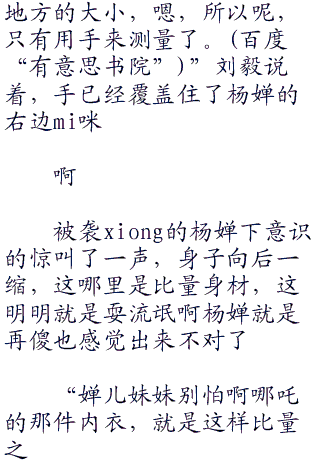 地方的大小，嗯，所以呢，
只有用手来测量了。(百度
“有意思书院”)”刘毅说
着，手已经覆盖住了杨婵的
右边mi咪
啊
被袭xiong的杨婵下意识
的惊叫了一声，身子向后一
缩，这哪里是比量身材，这
明明就是耍流氓啊杨婵就是
再傻也感觉出来不对了
“婵儿妹妹别怕啊哪吒
的那件内衣，就是这样比量
之